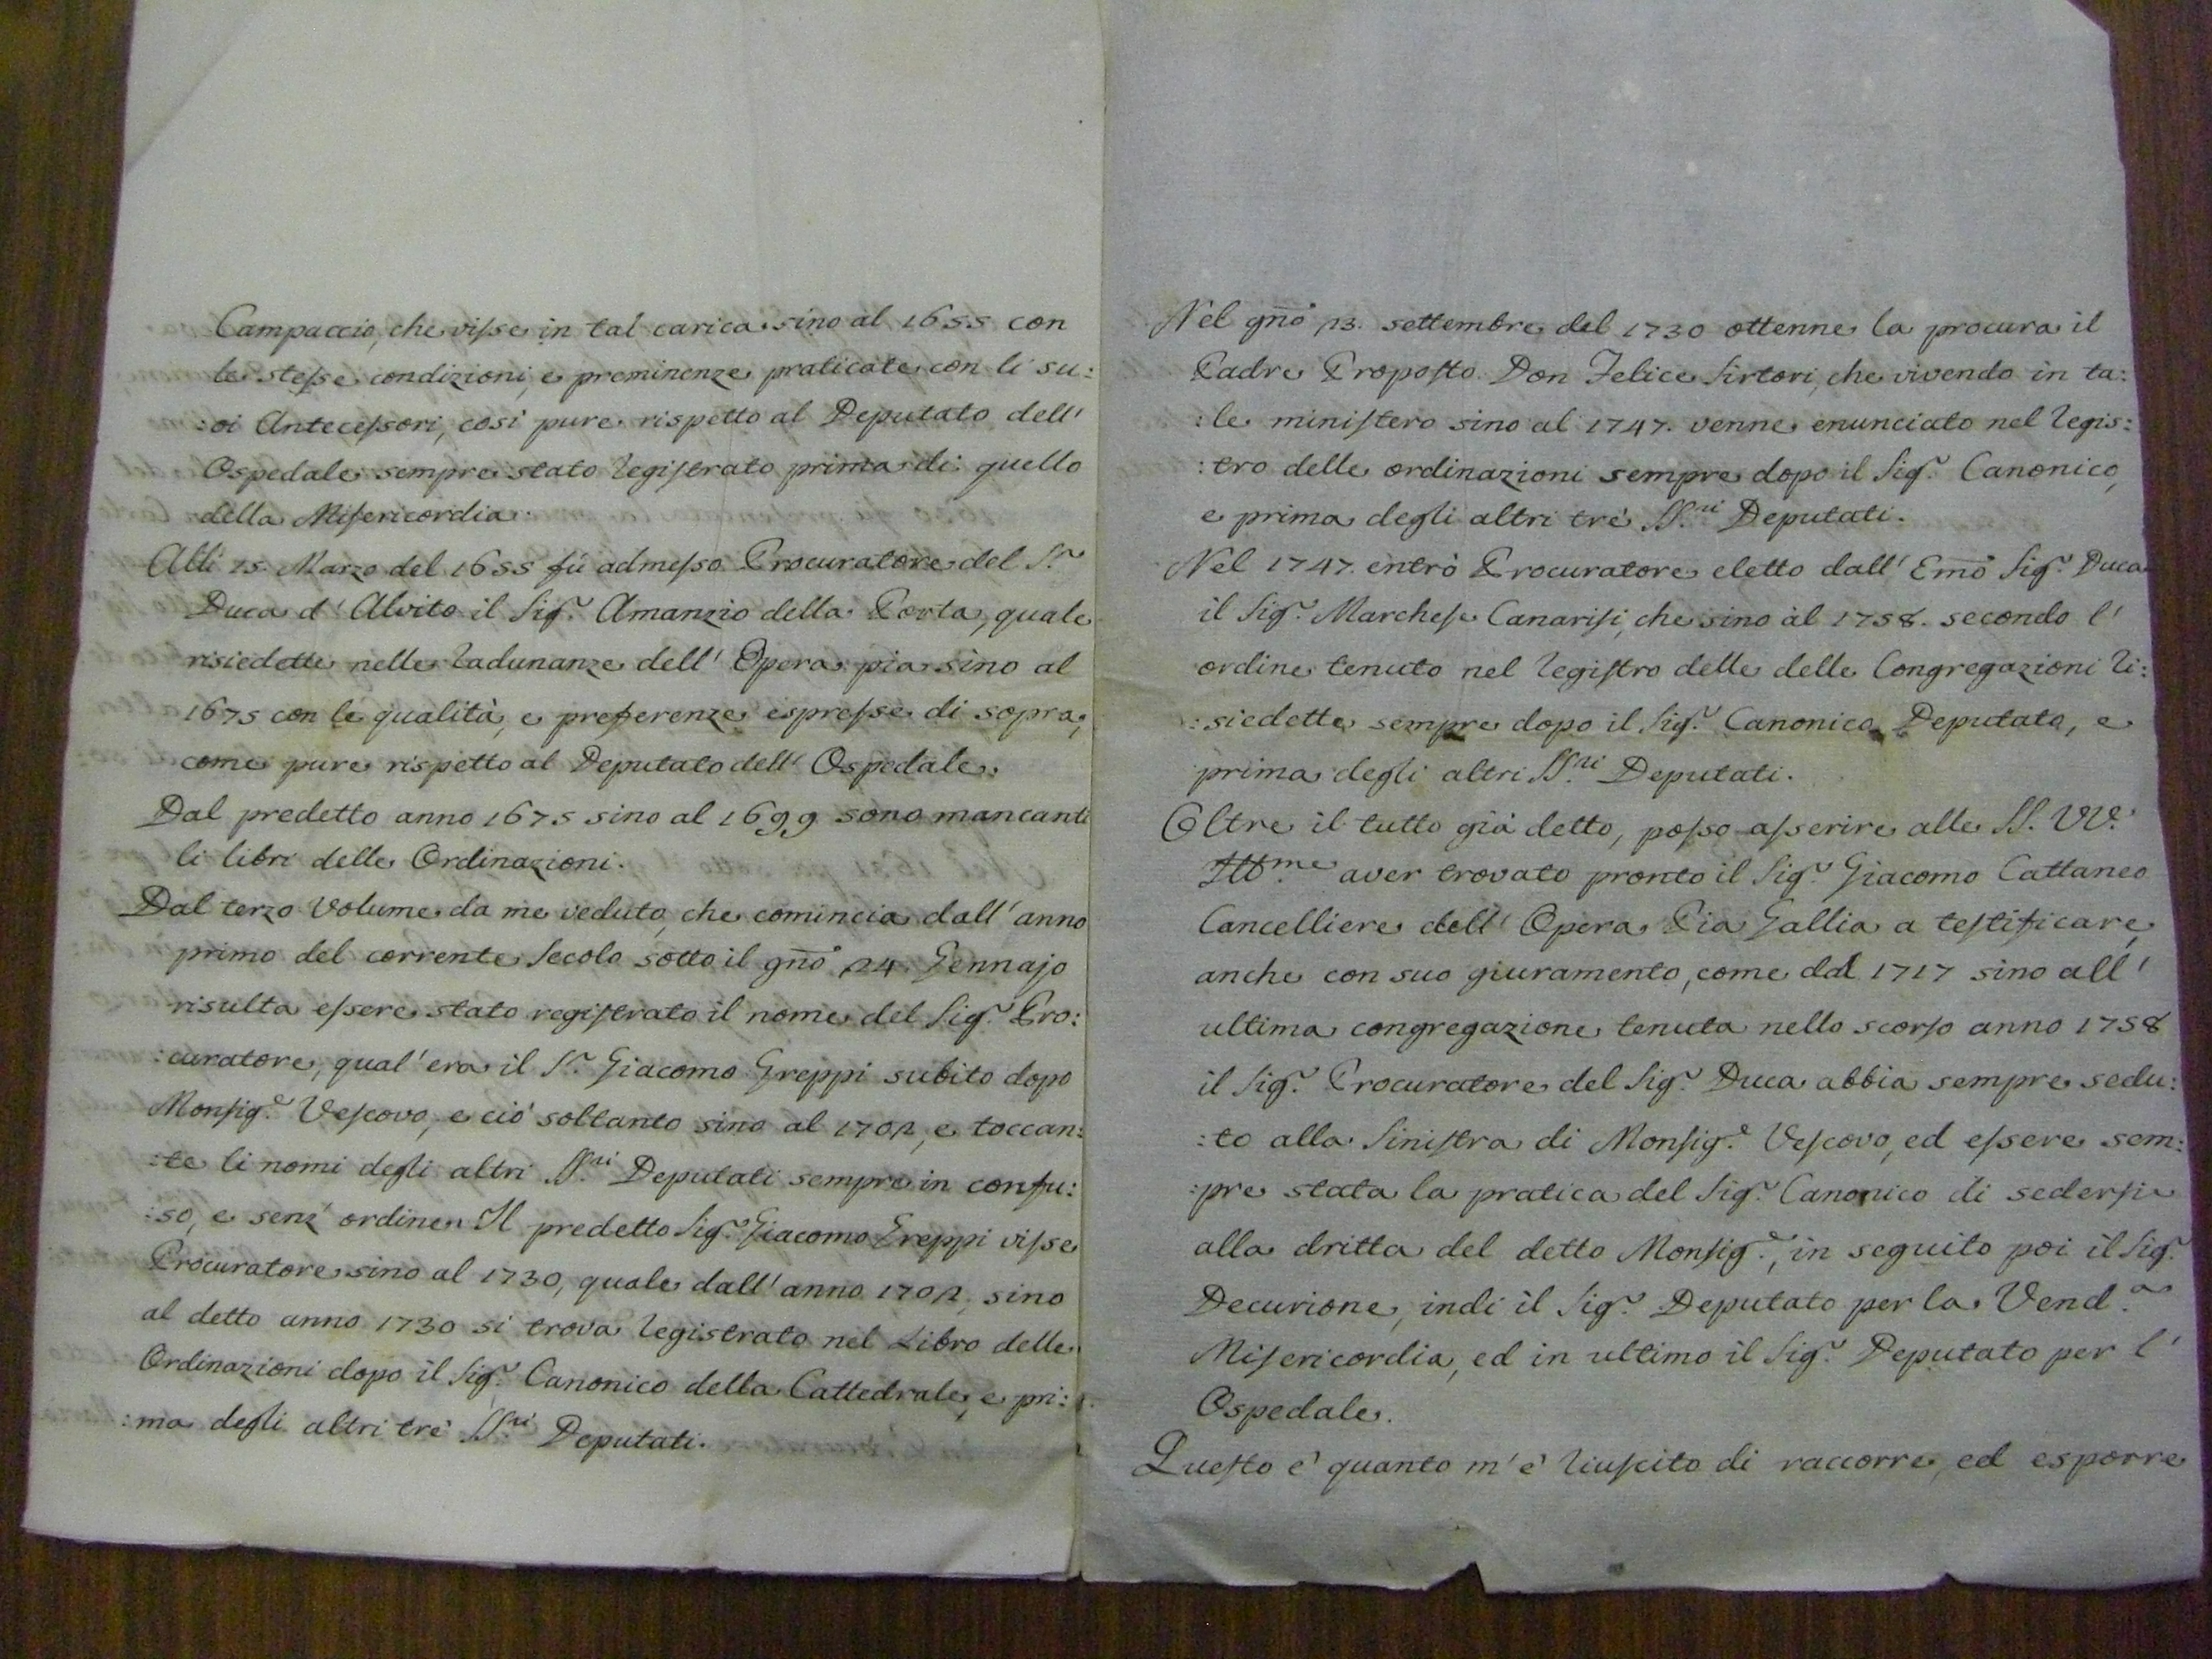 Campaccio, che visse in tal carica sino al 1655 con
le stesse condizioni, e preminenze praticate con li su:
:oi Antecessori, così pure rispetto al Deputato dell'
Ospedale sempre stato registrato prima di quello
della Misericordia.
Alli 15. Marzo del 1655 fù admesso Procuratore del S.r
Duca d'Alvito il Sig.r Amanzio della Porta, quale
risiedette nelle radunanze dell'Opera pia sino al
1675 con le qualità, e preferenze espresse di sopra,
come pure rispetto al Deputato dell'Ospedale.
Dal predetto anno 1675 sino al 1699 sono mancanti
li libri delle Ordinazioni.
Dal terzo Volume da me veduto, che comincia dall'anno
primo del corrente Secolo sotto il gñο 24. Gennajo
risulta essere stato registrato il nome del Sig.r Pro:
:curatore, qual'era il S.r Giacomo Greppi subito dopo
Monsig.e Vescovo, e ciò soltanto sino al 1702, e toccan:
:te li nomi degli altri SS.ri Deputati sempre in confu:
:so, e senz'ordine. Il predetto Sig.r Giacomo Greppi visse
Procuratore sino al 1730, quale dall'anno 1702, sino
al detto anno 1730 si trova registrato nel Libro delle
Ordinazioni dopo il Sig.r Canonico della Cattedrale, e pri:
:ma degli altri trè SS.ri Deputati.
Nel gñο 13. settembre del 1730 ottenne la procura il
Padre Proposto Don Felice Sirtori, che vivendo in ta:
:le ministero sino al 1747. venne enunciato nel regis:
:tro delle ordinazioni sempre dopo il Sig.r Canonico,
e prima degli altri trè SS.ri Deputati.
Nel 1747. entrò Procuratore eletto dall'Em̃o Sig.r Duca
il Sig.r Marchese Canarisi, che sino al 1758. secondo l'
ordine tenuto nel registro delle delle Congregazioni ri:
:siedette sempre dopo il Sig.r Canonico Deputato, e
prima degli altri SS.ri Deputati.
Oltre il tutto già detto, posso asserire alle SS. VV.
Ill.me aver trovato pronto il Sig.r Giacomo Cattaneo
Cancelliere dell'Opera Pia Gallia a testificare,
anche con suo giuramento, come dal 1717 sino all'
ultima congregazione tenuta nello scorso anno 1758
il Sig.r Procuratore del Sig.r Duca abbia sempre sedu:
:to alla Sinistra di Monsig.e Vescovo, ed essere sem:
:pre stata la pratica del Sig.r Canonico di sedersi
alla dritta del detto Monsig.e, in seguito poi il Sig.r
Decurione, indi il Sig.r Deputato per la Vend.a
Misericordia, ed in ultimo il Sig.r Deputato per l'
Ospedale.
Questo è quanto m'è riuscito di raccorre, ed esporre